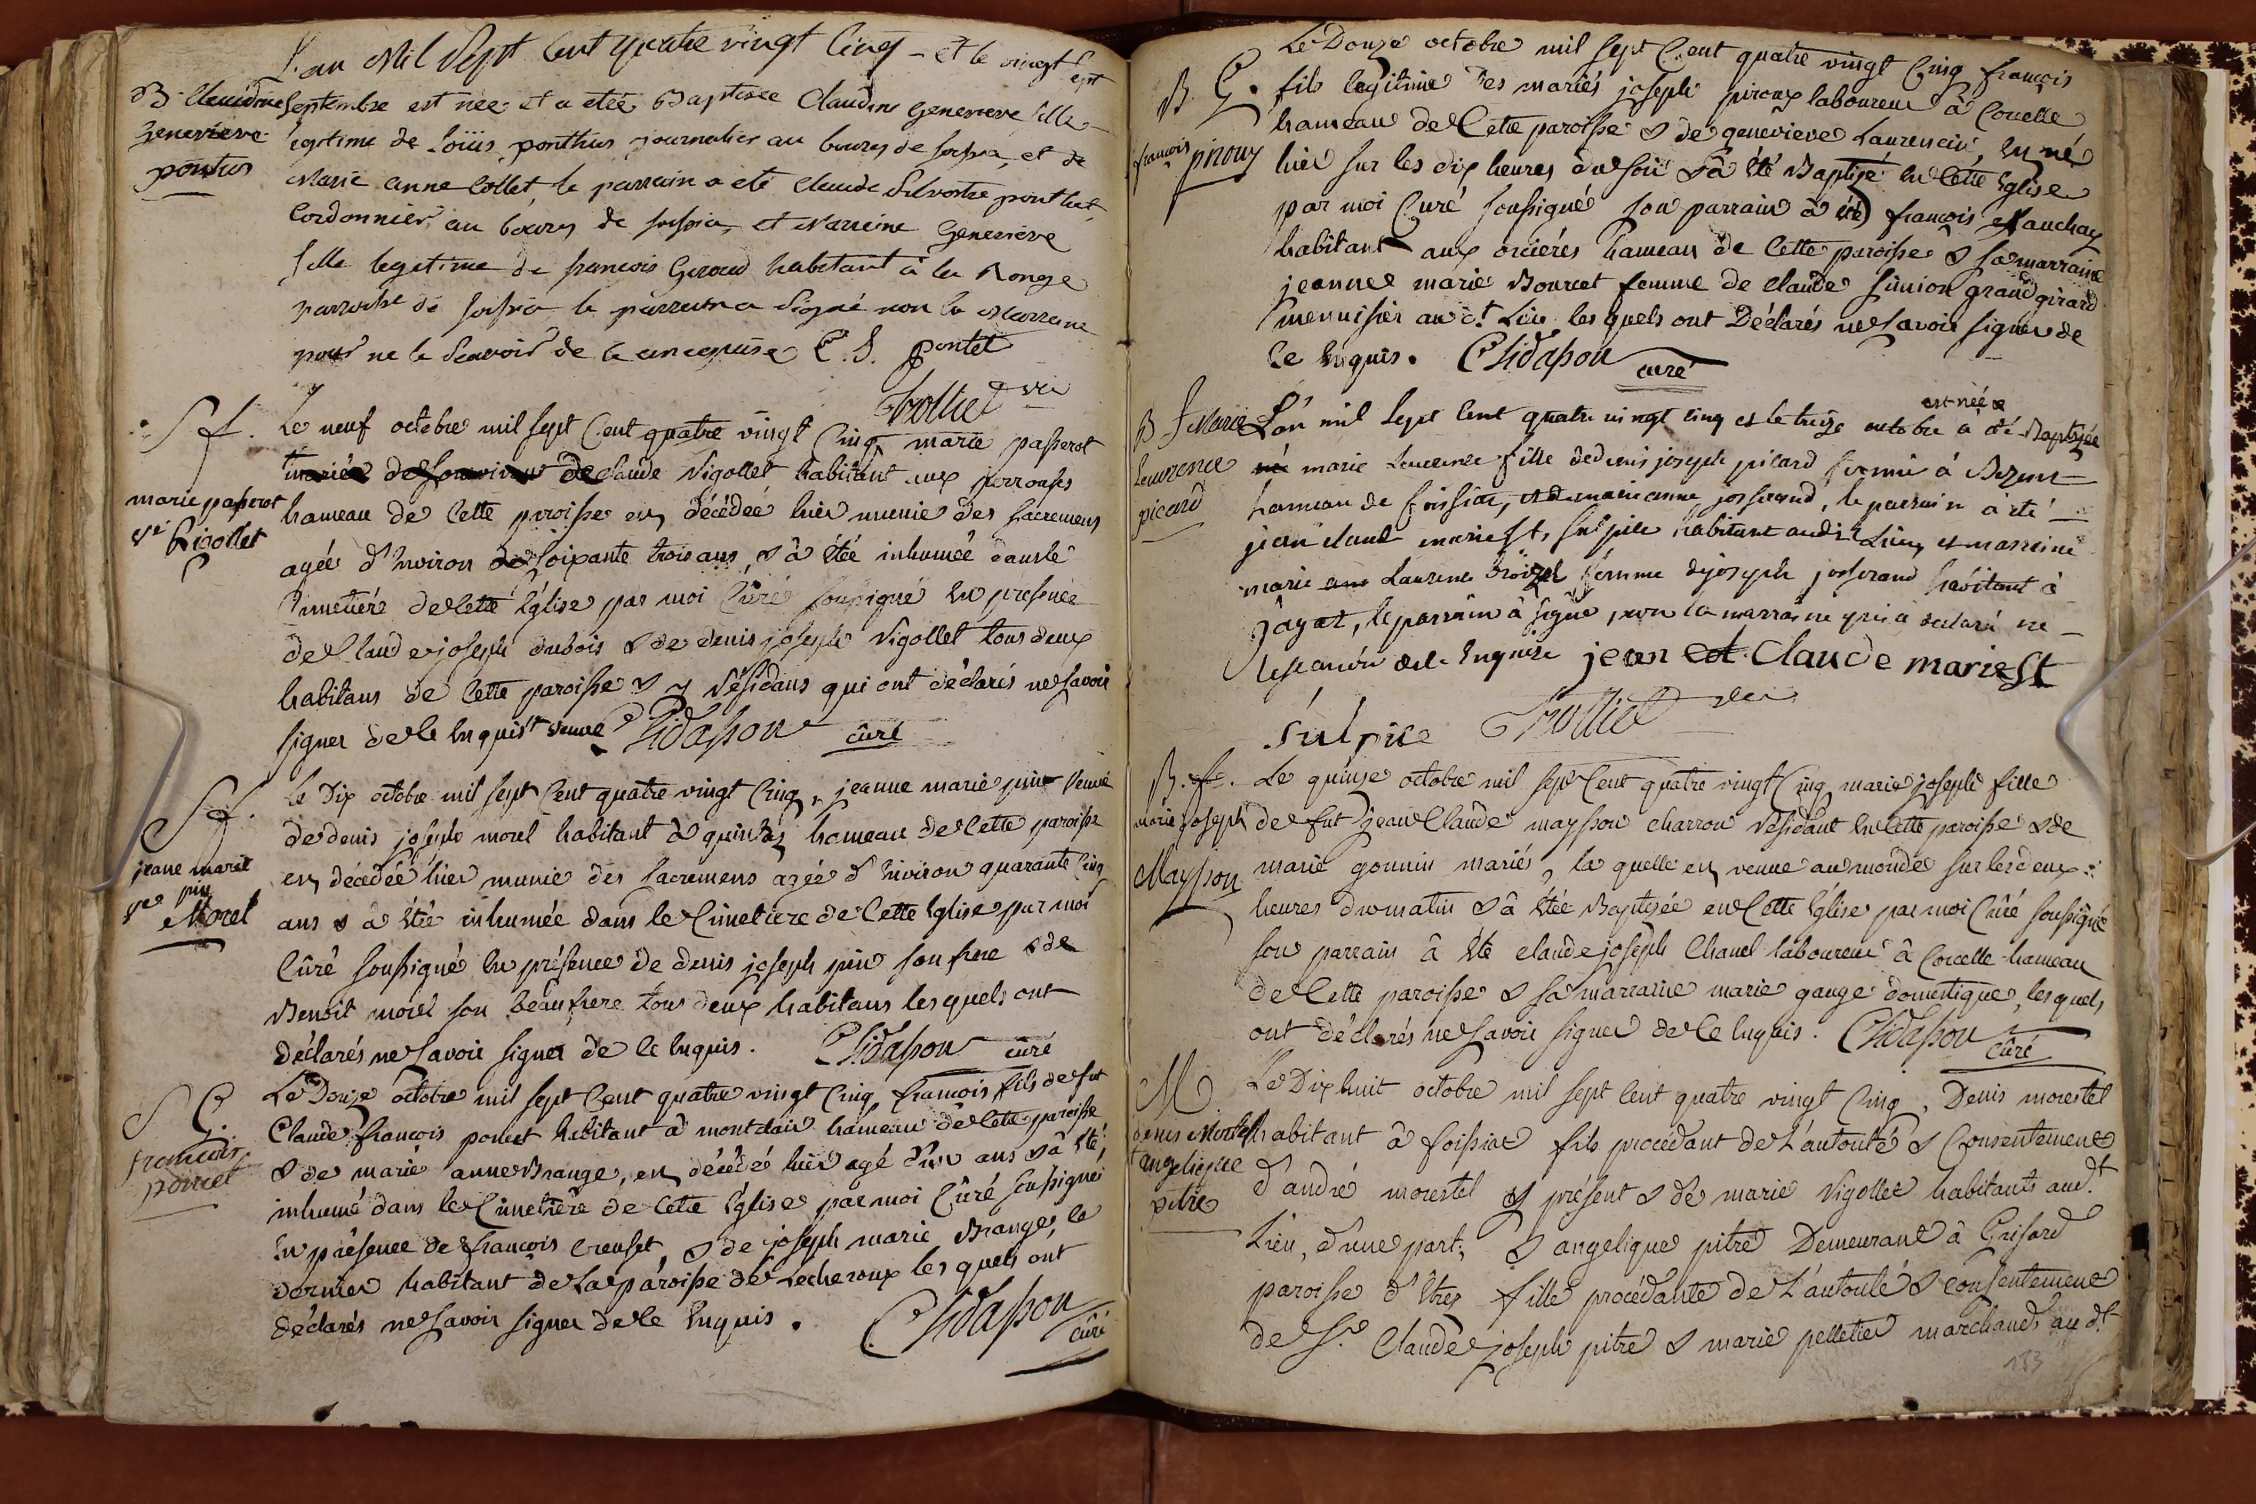 L'an Mil Sept Cent quatre vingt Cinq - et le vingt sept
B. Claudine
Genevieve
pontus
Septembre est née et a etée Baptisée Claudine Genevieve fille
legitime de Loüis ponthus journalier au bourg de et de
Marie anne Collet, le parrain a ete Claude Silvestre ponthet
Cordonnier au bourg de et Marreine Genevieve
fille legitime de francois Giroud habitant à la Ronge
parroisse de le parrein a Signé non la Marreine
pour ne le Scavoir de ce enequise C. S. pontet
Trolliet vic
S f.
marie passerot
ve Vigollet
Le neuf octobre mil sept Cent quatre vingt Cinq marie passerot
de Claude Vigollet habitant aux perrouses
hameau de Cette paroisse est décédée hier munie des Sacremens
agée d'Environ soixante trois ans, & à Etée inhumée dans le
Cimetiére de Cette Eglise par moi Curé soussigné En presence
de Claude joseph dubois & de denis joseph Vigollet tous deux
habitans de Cette paroisse & y Residans qui ont déclarés ne savoir
signer de ce Enquis † veuve Chidasson curé
S f.
jeane marie
pin
ve Morel
Le Dix octobre mil sept Cent quatre vingt Cinq, jeanne marie pin veuve
de denis joseph morel habitant à hameau de Cette paroisse
est décédée hier munie des Sacremens agée d'Environ quarante Cinq
ans & à Etée inhumée dans le Cimetiere de Cette Eglise par moi
Cûré soussigné En présence de denis joseph pin son frere & de
Benoit morel son beaufrere tous deux habitans lesquels ont
déclarés ne savoir signer de ce Enquis. Chidasson curé
S G.
francois
poncet
Le Douze octobre mil sept Cent quatre vingt Cinq francois fils de fut
Claude françois poncet habitant à montclair hameau de Cette paroisse
& de marie anne Brange, est décédé hier agé d'un ans & à Eté
inhumé dans le Cimetiere de Cette Eglise par moi Cûré soussigné
En présence de françois Creuset, & de joseph marie Brange, le
dernier habitant de La paroisse de Lecheroux lesquels ont
déclarés ne savoir signer de ce Enquis. Chidasson
curé
Le Douze octobre mil sept Cent quatre vingt Cinq françois
B. G.
françois pirouy
fils legitime des mariés joseph piroux laboureur à Corcelle
hameau de Cette paroisse & de genevieve Laurencin, est né
hier sur les dix heures du soir & à Eté Baptizé En Cette Eglise
par moi Curé soussigné son parrain à été françois Mauchay
habitant aux orciéres hameau de Cette paroisse & sa marraine
jeanne marie Bourcet femme de Claude grand girard
menuisier au dt. Lieu lesquels ont Déclarés ne savoir signer de
ce Enquis. Chidasson curé
B f Marie
Leurence
picard
L'an mil Sept Cent quatre vingt cinq et le treize octobre est née & à été Baptizée
marie Leurence fille de denis joseph picard fermié à
hameau de foissiat, et de marie anne josserand, le parrain à été
jean claude marie St, sulpice habitant audit Lieu, et marreine
marie Laurence femme de joseph josserand habitant à
jayat, le parrain à signé, non la marraine qui à declaré ne
le scavoir de ce Enquise jean Claude marie St
Sulpice Trolliet vic
B. f.
marie joseph
Maysson
Le quinze octobre mil sept Cent quatre vingt Cinq marie joseph fille
de fut jean Claude maysson charron résidant En Cette paroisse & de
marie gonnin mariés, la quelle est venue au monde sur les deux
heures du matin & à Etée Baptizée en Cette Eglise par moi Cûré soussigné
son parrain à Eté claude joseph Chanel laboureur à Corcelle hameau
de Cette paroisse & sa marraine marie gauge domestique, lesquels
ont déclarés ne savoir signer de ce Enquis. Chidasson
curé
M
denis Morestel
angelique
pitre
Le Dix huit octobre mil sept Cent quatre vingt Cinq, Denis morestel
habitant à foissiat fils procédant de L'autorité & Consentement
d'andré morestel y présent & de marie Vigollet habitants au dt.
Lieu, d'une part; & angelique pitre Demeurant à Grisard
paroisse d'Etrez fille procédante de L'autorité & consentement
de Sr. Claude joseph pitre & marie pelletier marchands au dt
153